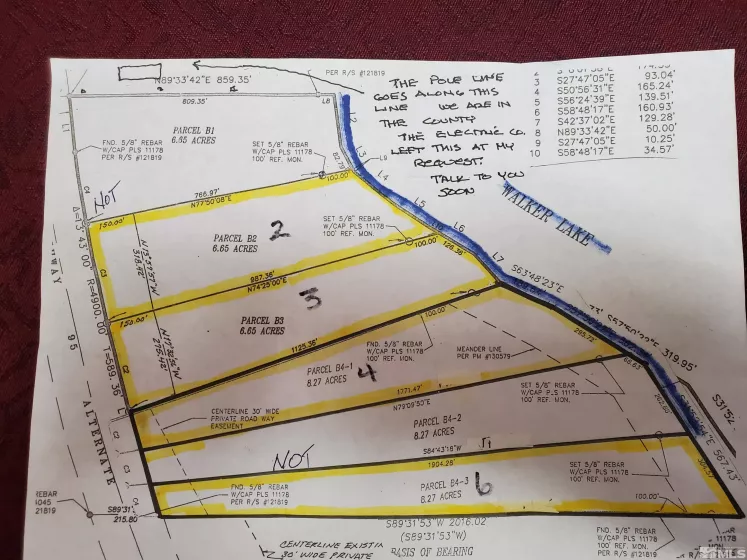 N89°33'42"E 859.35'
PER R/S #121819
809.35'
L8
THE POLE LINE
GOES ALONG THIS
LINE WE ARE IN
THE COUNTY
THE ELECTRIC CO.
LEFT THIS AT MY
REQUEST.
TALK TO YOU
SOON
2
3 S27°47'05"E 93.04'
4 S50°56'31"E 165.24'
5 S56°24'39"E 139.51'
6 S58°48'17"E 160.93'
7 S42°37'02"E 129.28'
8 N89°33'42"E 50.00'
9 S27°47'05"E 10.25'
10 S58°48'17"E 34.57'
L1
PARCEL B1
6.65 ACRES
FND. 5/8" REBAR
W/CAP PLS 11178
PER R/S #121819
SET 5/8" REBAR
W/CAP PLS 11178
100' REF. MON.
L2
L3
L9
L4
L5
L6
L7
82.79
100.00'
NOT
766.97'
N77°50'08"E
WALKER LAKE
150.00'
PARCEL B2
6.65 ACRES
2
SET 5/8" REBAR
W/CAP PLS 11178
100' REF. MON.
100.00
126.36'
S63°48'23"E
987.36'
N74°25'00"E
3
150.00'
PARCEL B3
6.65 ACRES
1125.36'
100.00'
FND. 5/8" REBAR
W/CAP PLS 11178
100' REF. MON.
MEANDER LINE
PER PM #130579
319.95'
PARCEL B4-1
8.27 ACRES
4
1771.47'
N79°09'50"E
SET 5/8" REBAR
W/CAP PLS 11178
100' REF. MON.
CENTERLINE 30' WIDE
PRIVATE ROAD WAY
EASEMENT
PARCEL B4-2
8.27 ACRES
WAY
95
ALTERNATE
R=4900.00
NOT
S84°43'16"W
1904.26'
SET 5/8" REBAR
W/CAP PLS 11178
100' REF. MON.
567.43'
FND. 5/8" REBAR
W/CAP PLS 11178
PER R/S #121819
PARCEL B4-3
8.27 ACRES
6
100.00'
REBAR
S89°31'
215.80
S89°31'53"W 2016.02
(S89°31'53"W)
BASIS OF BEARING
CENTERLINE EXISTIN
30' WIDE PRIVATE
FND. 5/8" REBAR
W/CAP PLS 11178
MLS